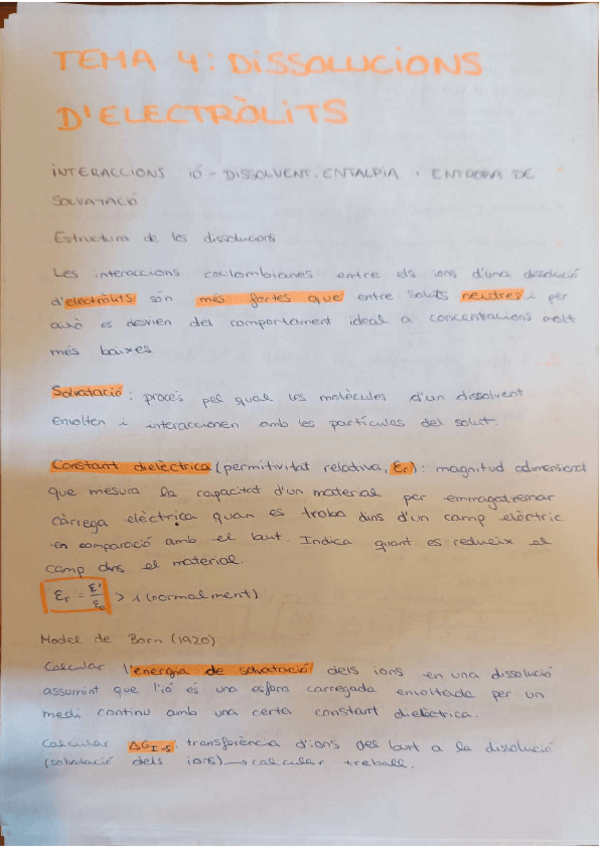 TEMA 4: DISSOLUCIONS
D'ELECTRÒLITS
INTERACCIONS IÓ - DISSOLVENT. ENTALPIA I ENTROPIA DE
SOLVATACIÓ
Estructura de les dissolucions
Les interaccions coulombianes entre els ions d'una dissolució
d'electròlits són més fortes que entre soluts neutres i per
això es desvien del comportament ideal a concentracions molt
més baixes.
Solvatació: procés pel qual les molècules d'un dissolvent
envolten i interaccionen amb les partícules del solut.
Constant dielèctrica (permitivitat relativa, εr): magnitud adimensional
que mesura la capacitat d'un material per emmagatzemar
càrrega elèctrica quan es troba dins d'un camp elèctric
en comparació amb el buit. Indica quant es redueix el
camp dins el material.
εr = ε'/ε0 > 1 (normalment)
Model de Born (1920)
Calcular l'energia de solvatació dels ions en una dissolució
assumint que l'ió és una esfera carregada envoltada per un
medi continu amb una certa constant dielèctrica.
Calcular ΔGI-S, transferència d'ions del buit a la dissolució
(solvatació dels ions) → calcular treball.